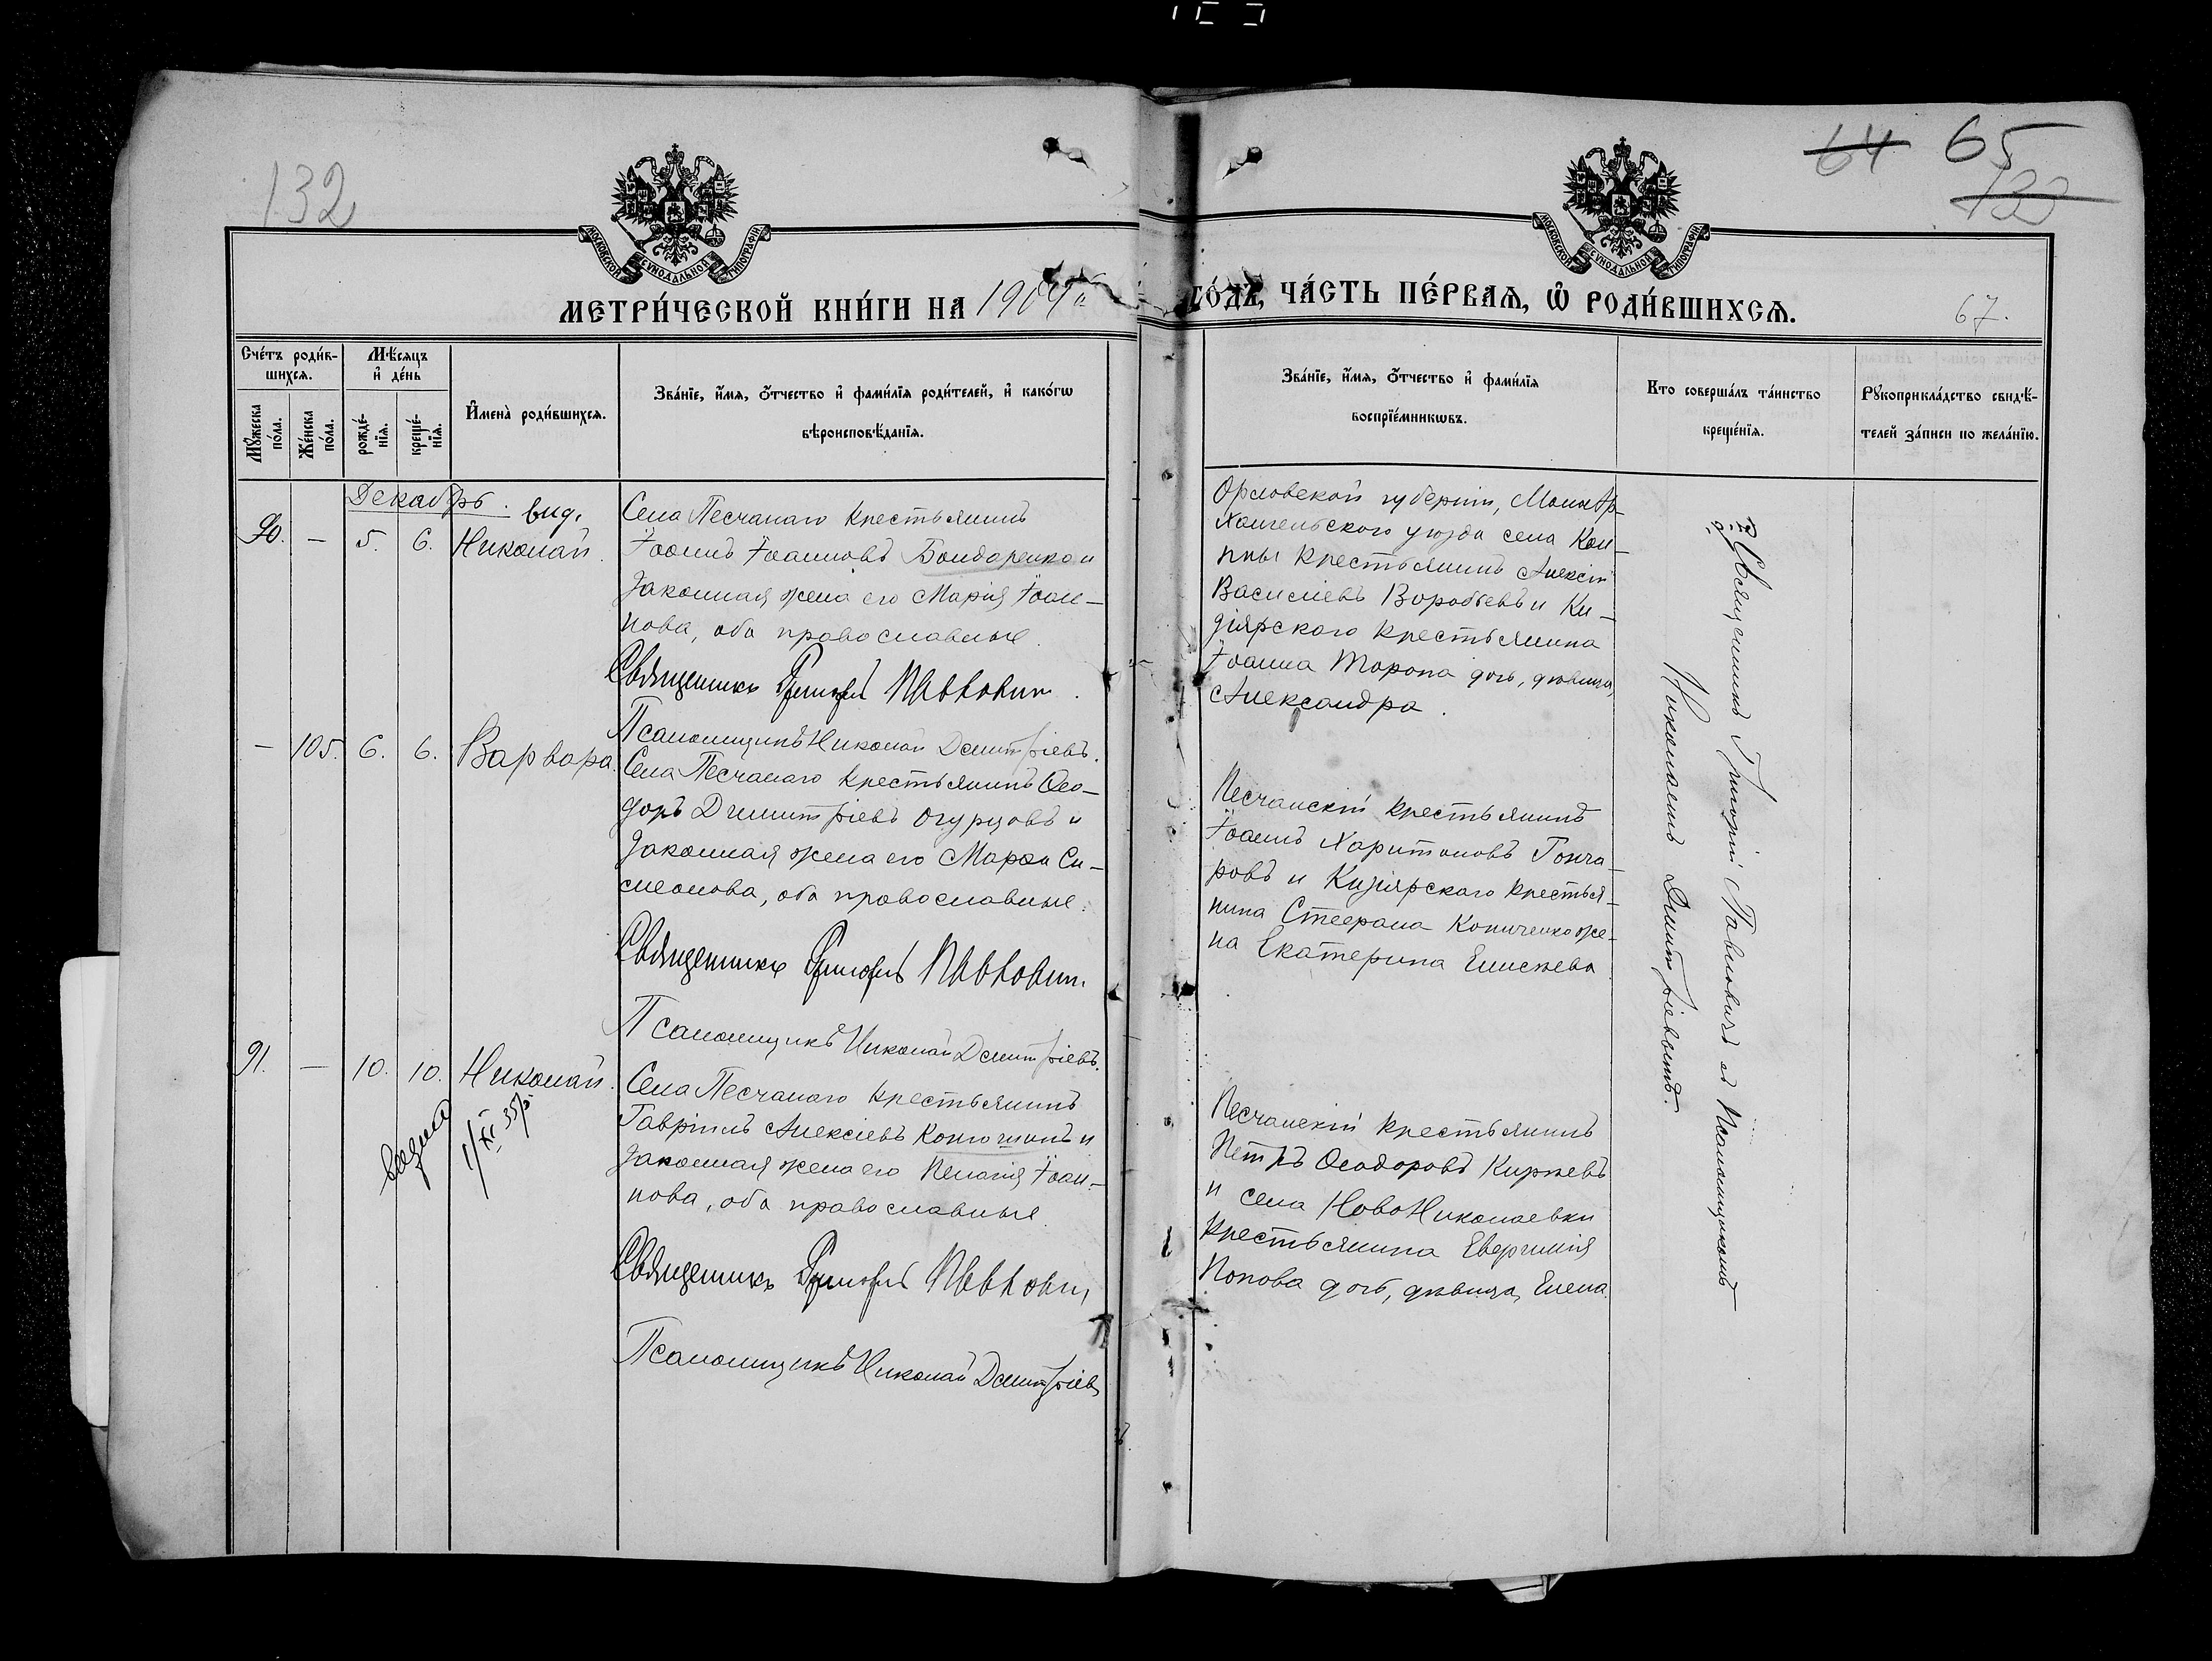 132
64 65
133
МОСКОВСКОЙ СѴНОДАЛЬНОЙ ТИПОГРАФІИ
МОСКОВСКОЙ СѴНОДАЛЬНОЙ ТИПОГРАФІИ
МЕТРИ́ЧЕСКОЙ КНИ́ГИ НА 1904 ГО́ДЪ, ЧА́СТЬ ПЕ́РВАЯ, Ѡ҆ РОДИ́ВШИХСѦ.
67.
Сче́тъ роди́в-
шихся.
Мѣ́сяцъ
и҆ де́нь
Мꙋ́жеска
по́ла.
Же́нска
по́ла.
рожде́-
нїя.
креще́-
нїя.
И҆мена̀ роди́вшихся.
Зва́нїе, и҆́мя, ѻ҆́тчество и҆ фами́лїя роди́телей, и҆ како́гѡ
вѣроисповѣ́данїя.
Зва́нїе, и҆́мя, ѻ҆́тчество и҆ фами́лїя
воспрїе́мникѡвъ.
Кто соверша́лъ та́инство
креще́нїя.
Рꙋкоприкла́дство свидѣ́-
телей за́писи по жела́нїю.
Декабрь.
вид.
90. — 5. 6. Николай.
Села Песчанаго крестьянинъ
Іоаннъ Іоанновъ Бондаренко и
законная жена его Марія Іоан-
нова, оба православные.
Священникъ Григорій Павловичъ.
Псаломщикъ Николай Димитріевъ.
Орловской губерніи, Мало Ар-
хангельского уѣзда села Кол-
пны крестьянинъ Алексій
Васильевъ Воробьевъ и Ки-
зіярского крестьянина
Іоанна Торопа дочь, дѣвица,
Александра.
— 105. 6. 6. Варвара.
Села Песчанаго крестьянинъ Ѳео-
доръ Димитріевъ Огурцовъ и
законная жена его Марѳа Си-
меонова, оба православные.
Священникъ Григорій Павловичъ.
Псаломщикъ Николай Димитріевъ.
Песчанскій крестьянинъ
Іоаннъ Харитоновъ Гонча-
ровъ и Кизіярскаго крестья-
нина Стефана Копиченко же-
на Екатерина Елисѣева
91. — 10. 10. Николай.
Села Песчанаго крестьянинъ
Гавріилъ Алексіевъ Конюшинъ и
законная жена его Пелагія Іоан-
нова, оба православные.
Священникъ Григорій Павловичъ,
Псаломщикъ Николай Димитріевъ
Песчанскій крестьянинъ
Петръ Ѳеодоровъ Киржевъ
и села Ново Николаевки
крестьянина Евфимія
Попова дочь, дѣвица, Елена.
Священникъ Григорій Павловичъ съ Псаломщикомъ
Николаемъ Димитріевымъ.